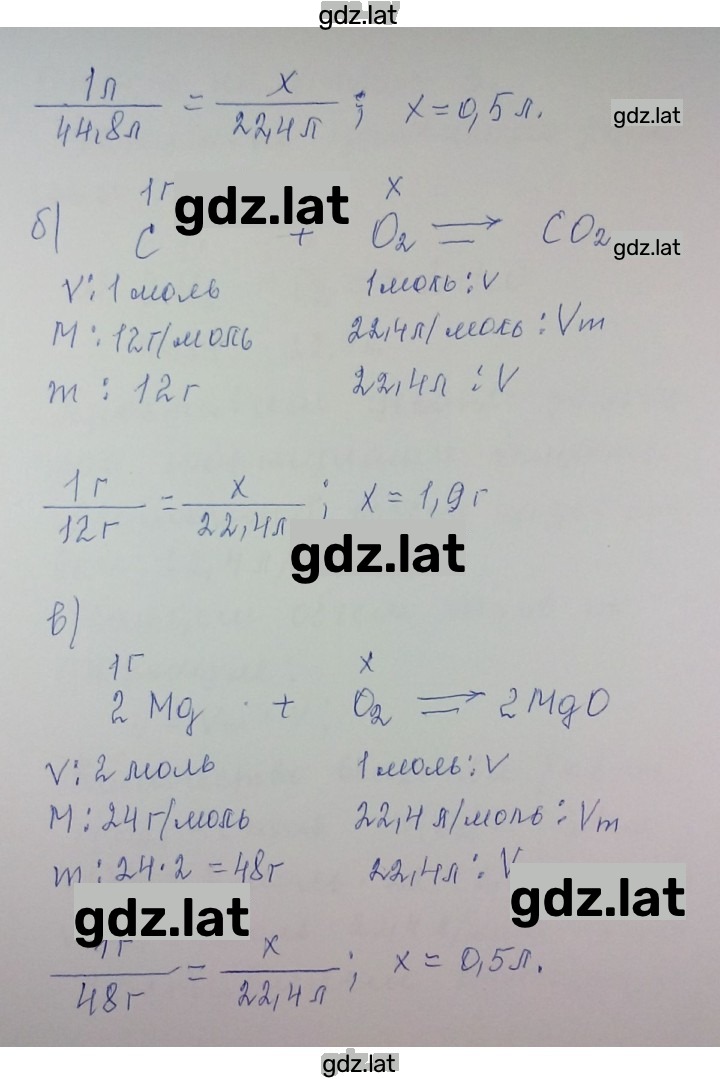 gdz.lat
1л/44,8л = x/22,4л ; x = 0,5 л.
gdz.lat
1г gdz.lat x
б) C + O₂ ⇒ CO₂ gdz.lat
ν: 1 моль 1 моль : ν
M : 12 г/моль 22,4 л/моль : Vm
m : 12 г 22,4 л : V
1 г/12 г = x/22,4 л ; x = 1,9 г
gdz.lat
в)
1г x
2 Mg + O₂ ⇒ 2 MgO
ν: 2 моль 1 моль : ν
M : 24 г/моль 22,4 л/моль : Vm
m : 24·2 = 48 г 22,4 л : V
gdz.lat gdz.lat
1г/48 г = x/22,4 л ; x = 0,5 л.
gdz.lat